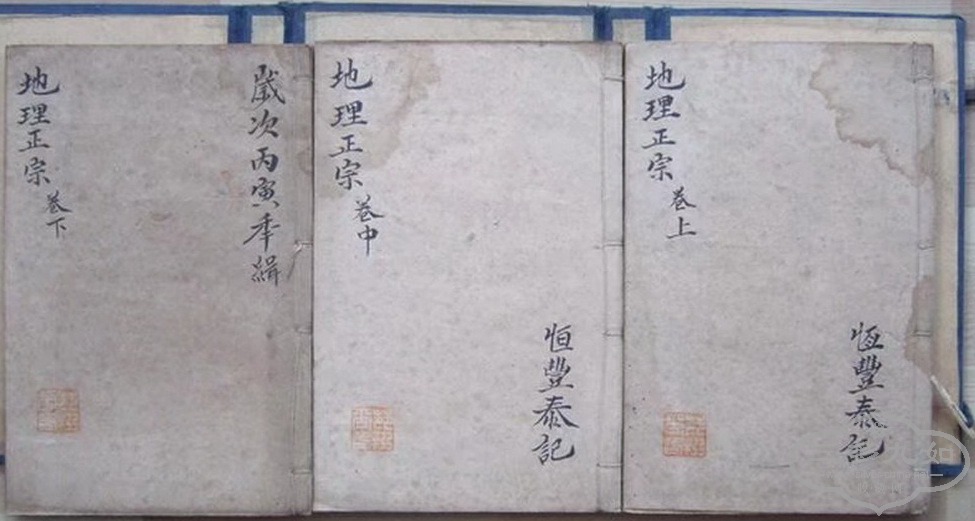 恆豐泰記
地理正宗 卷上
恒豐泰記
地理正宗 卷中
歲次丙寅年緝
地理正宗 卷下